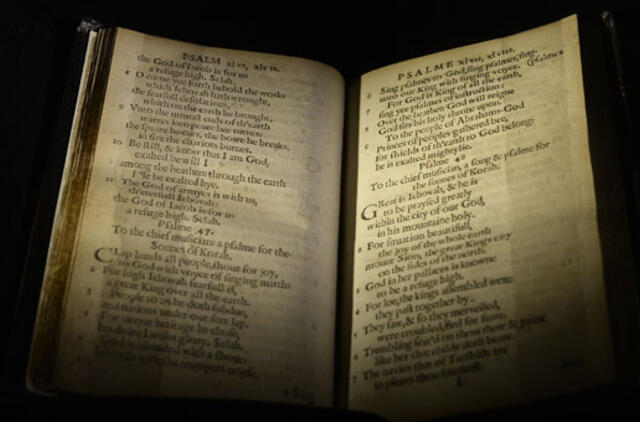 PSALM xlvi, xlvii.
the God of Iacob is for us
a refuge high. Selah.
8 O come yee forth behold the works
which Iehovah hath wrought,
the fearfull desolations,
which on the earth he brought.
9 Vnto the utmost ends of th'earth
warres into peace hee turnes:
the speare he cuts, the bowe he breaks,
in fire the chariots burnes.
10 Be still, & know that I am God,
exalted be will I
among the heathen: through the earth
I'le be exalted hye.
11 The God of armyes is with us,
th'eternall Iehovah:
the God of Iacob is for us
a refuge high. Selah.
Psalme .47.
To the chief musician: a psalme for the
Sonnes of Korah.
CLap hands all people, shout for joy,
to God with voyce of singing mirth:
2 For high Iehovah fearfull is,
a great King over all the earth.
3 People to us he doth subdue,
and nations under our feet lay.
4 For us our heritage he chose,
his deare Iacobs glory. Selah.
5 God is ascended with a shout:
Iehovah with the trumpets noyse.
6 Sing
PSALME xlvii, xlviii.
6 Sing psalmes to God, sing psalmes, sing
unto our King with singing voyce. (psalmes
7 For God is King of all the earth,
sing yee psalmes of instruction:
8 Over the heathen God will reigne
God sits his holy throne upon.
9 To the people of Abrahams God
Princes of peoples gathered bee,
for shields of th'earth to God belong:
he is exalted mightylie.
Psalme 48
To the chief musician, a song & psalme for
the sonnes of Korah.
GReat is Iehovah, & he is
to be praysed greatly
within the city of our God,
in his mountaine holy.
2 For situation beautifull,
the joy of the whole earth
mount Sion; the great Kings city
on the sides of the north.
3 God in her pallaces is knowne
to be a refuge high.
4 For loe, the kings assembled were:
they past together by.
5 They saw, & so they merveiled,
were troubled, fled for feare.
6 Trembling seiz'd on them there & paine
like her that childe doth beare.
7 The navies that of Tarshish are
in pieces thou breakest: